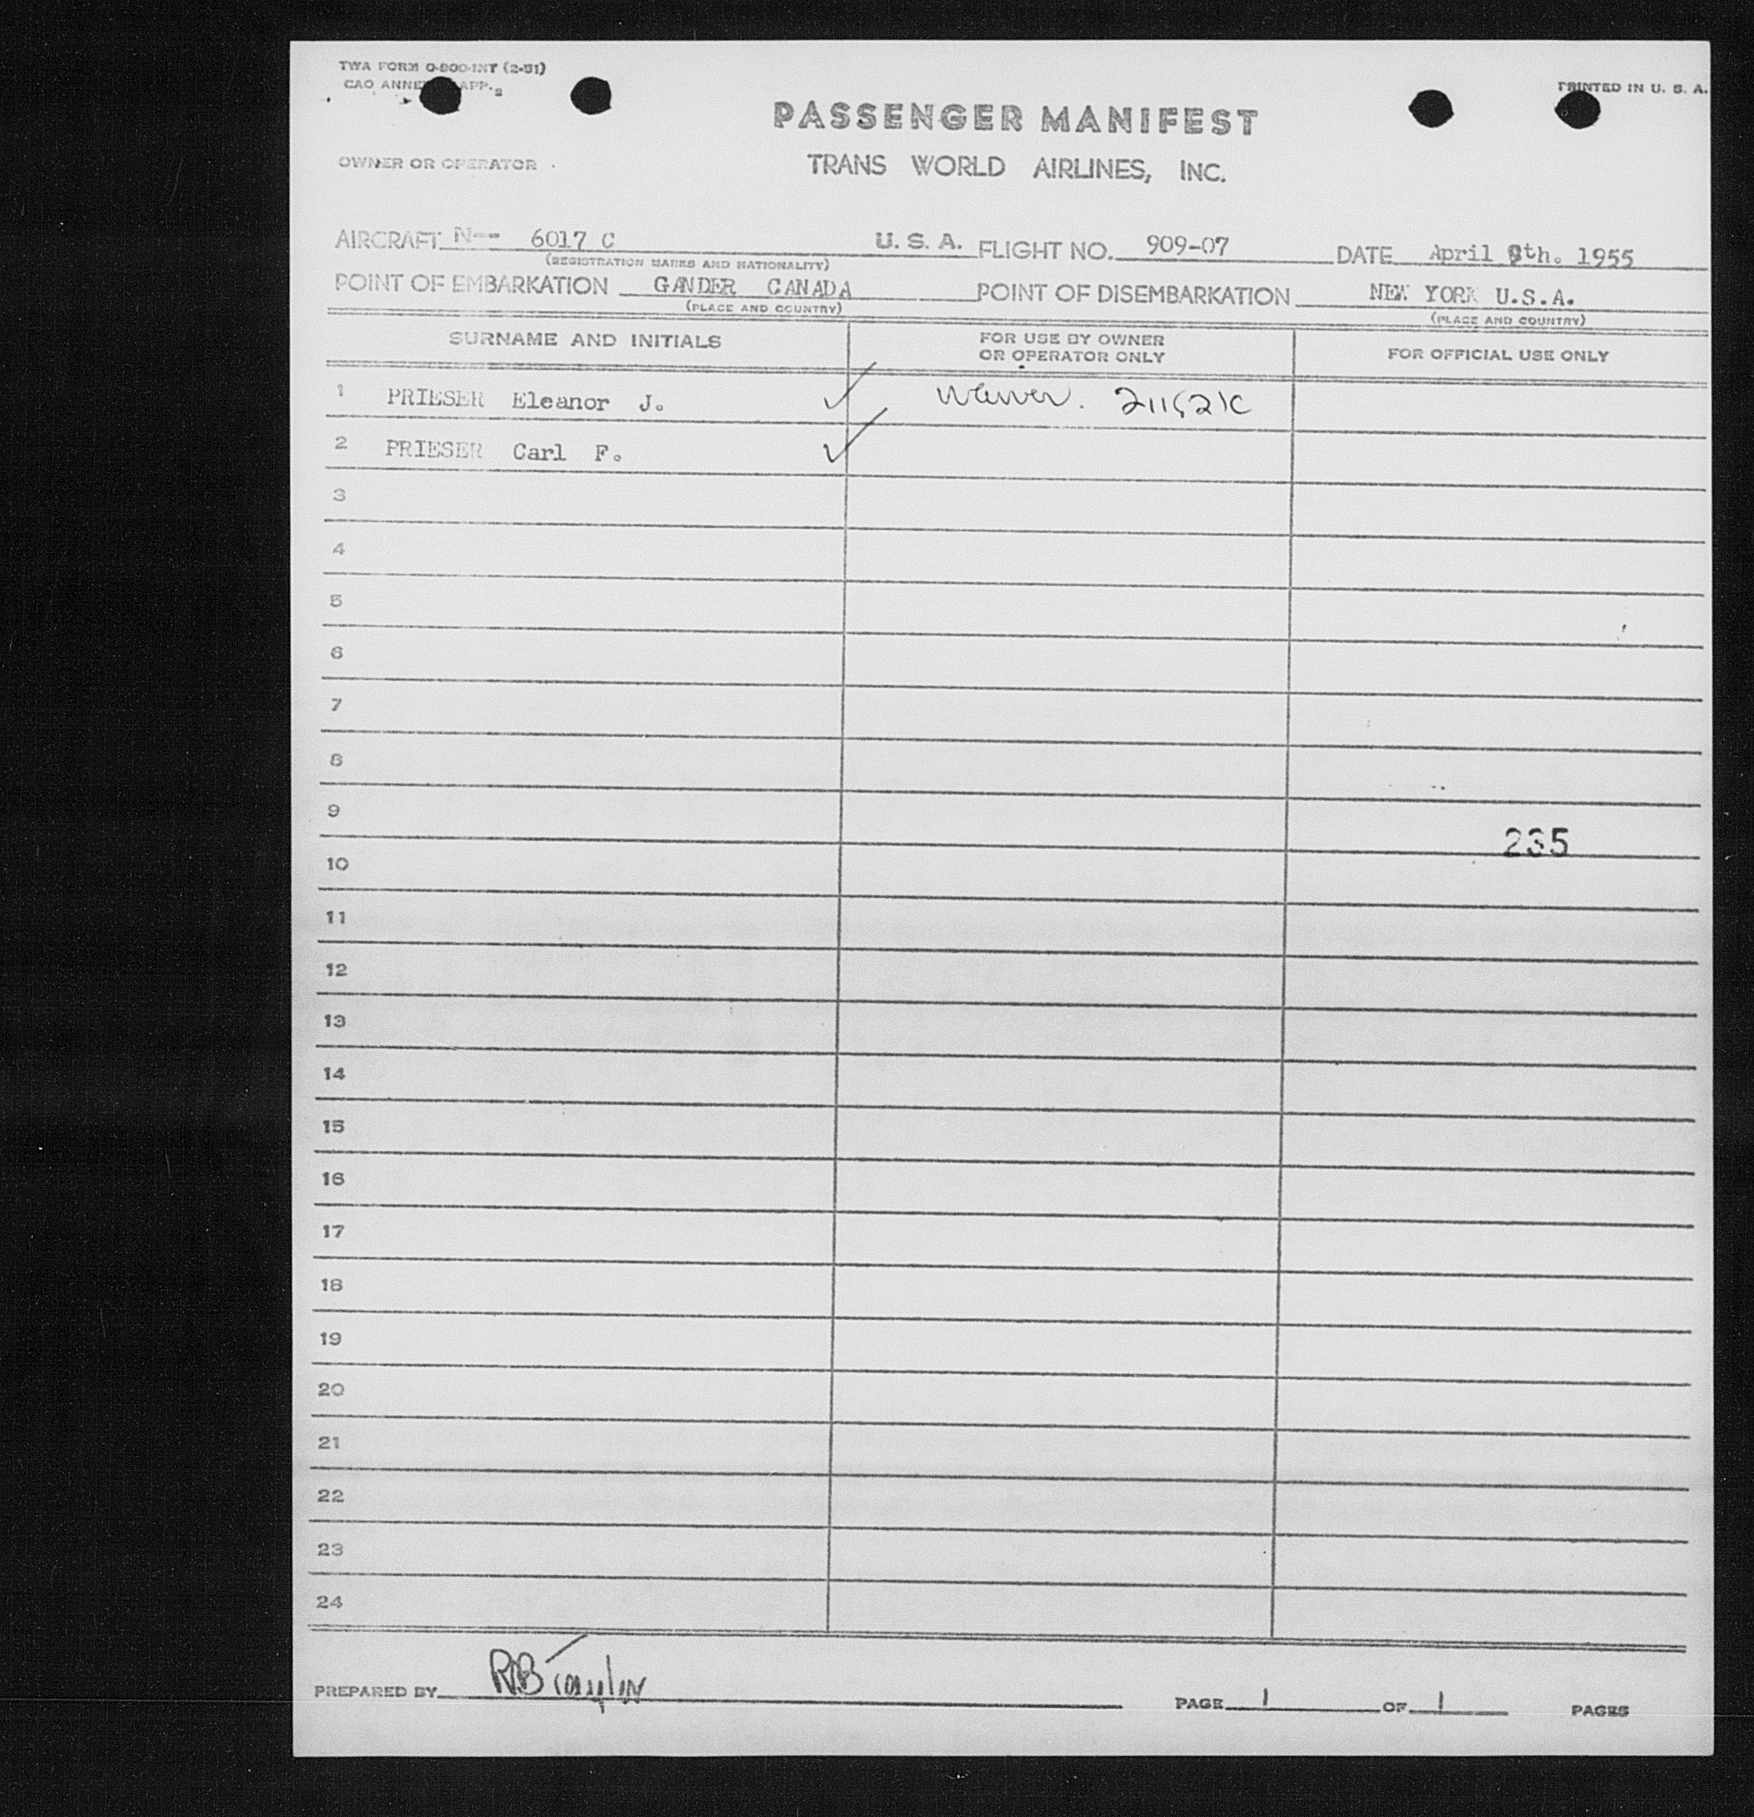 TWA FORM O-800-INT (2-51)
CAO ANNE APP. 2
PRINTED IN U. S. A.
PASSENGER MANIFEST
OWNER OR OPERATOR
TRANS WORLD AIRLINES, INC.
AIRCRAFT N-- 6017 C U. S. A. FLIGHT NO. 909-07 DATE April th. 1955
(REGISTRATION MARKS AND NATIONALITY)
POINT OF EMBARKATION GANDER CANADA POINT OF DISEMBARKATION NEW YORK U.S.A.
(PLACE AND COUNTRY) (PLACE AND COUNTRY)
SURNAME AND INITIALS FOR USE BY OWNER OR OPERATOR ONLY FOR OFFICIAL USE ONLY
1 PRIESER Eleanor J.
2 PRIESER Carl F.
3
4
5
6
7
8
9
235
10
11
12
13
14
15
16
17
18
19
20
21
22
23
24
PREPARED BY RB Taylor PAGE 1 OF 1 PAGES